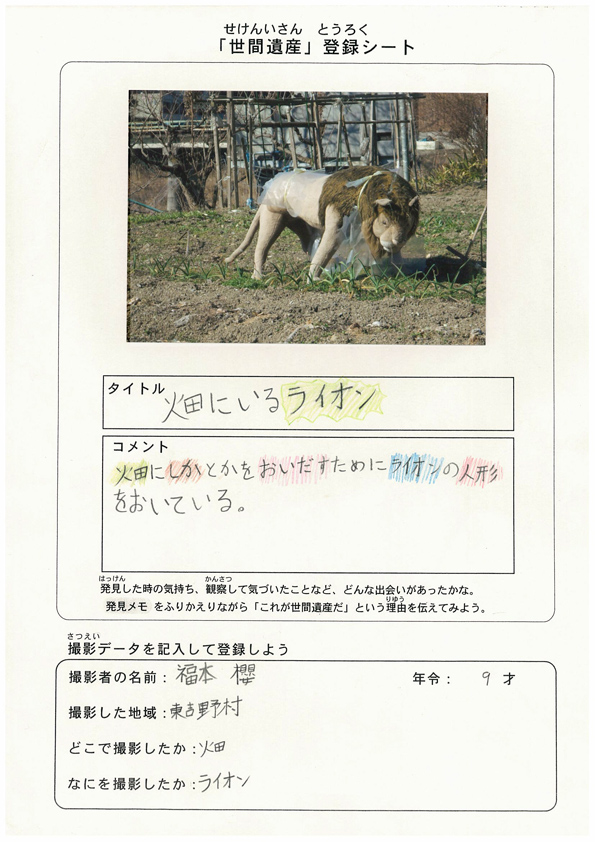 せけんいさん とうろく
「世間遺産」登録シート
タイトル
畑にいるライオン
コメント
畑にしかとかをおいだすためにライオンの人形
をおいている。
はっけん かんさつ
発見した時の気持ち、観察して気づいたことなど、どんな出会いがあったかな。
りゆう
発見メモ をふりかえりながら「これが世間遺産だ」という理由を伝えてみよう。
さつえい
撮影データを記入して登録しよう
撮影者の名前：福本 櫻 年令： 9 才
撮影した地域：東吉野村
どこで撮影したか：畑
なにを撮影したか：ライオン